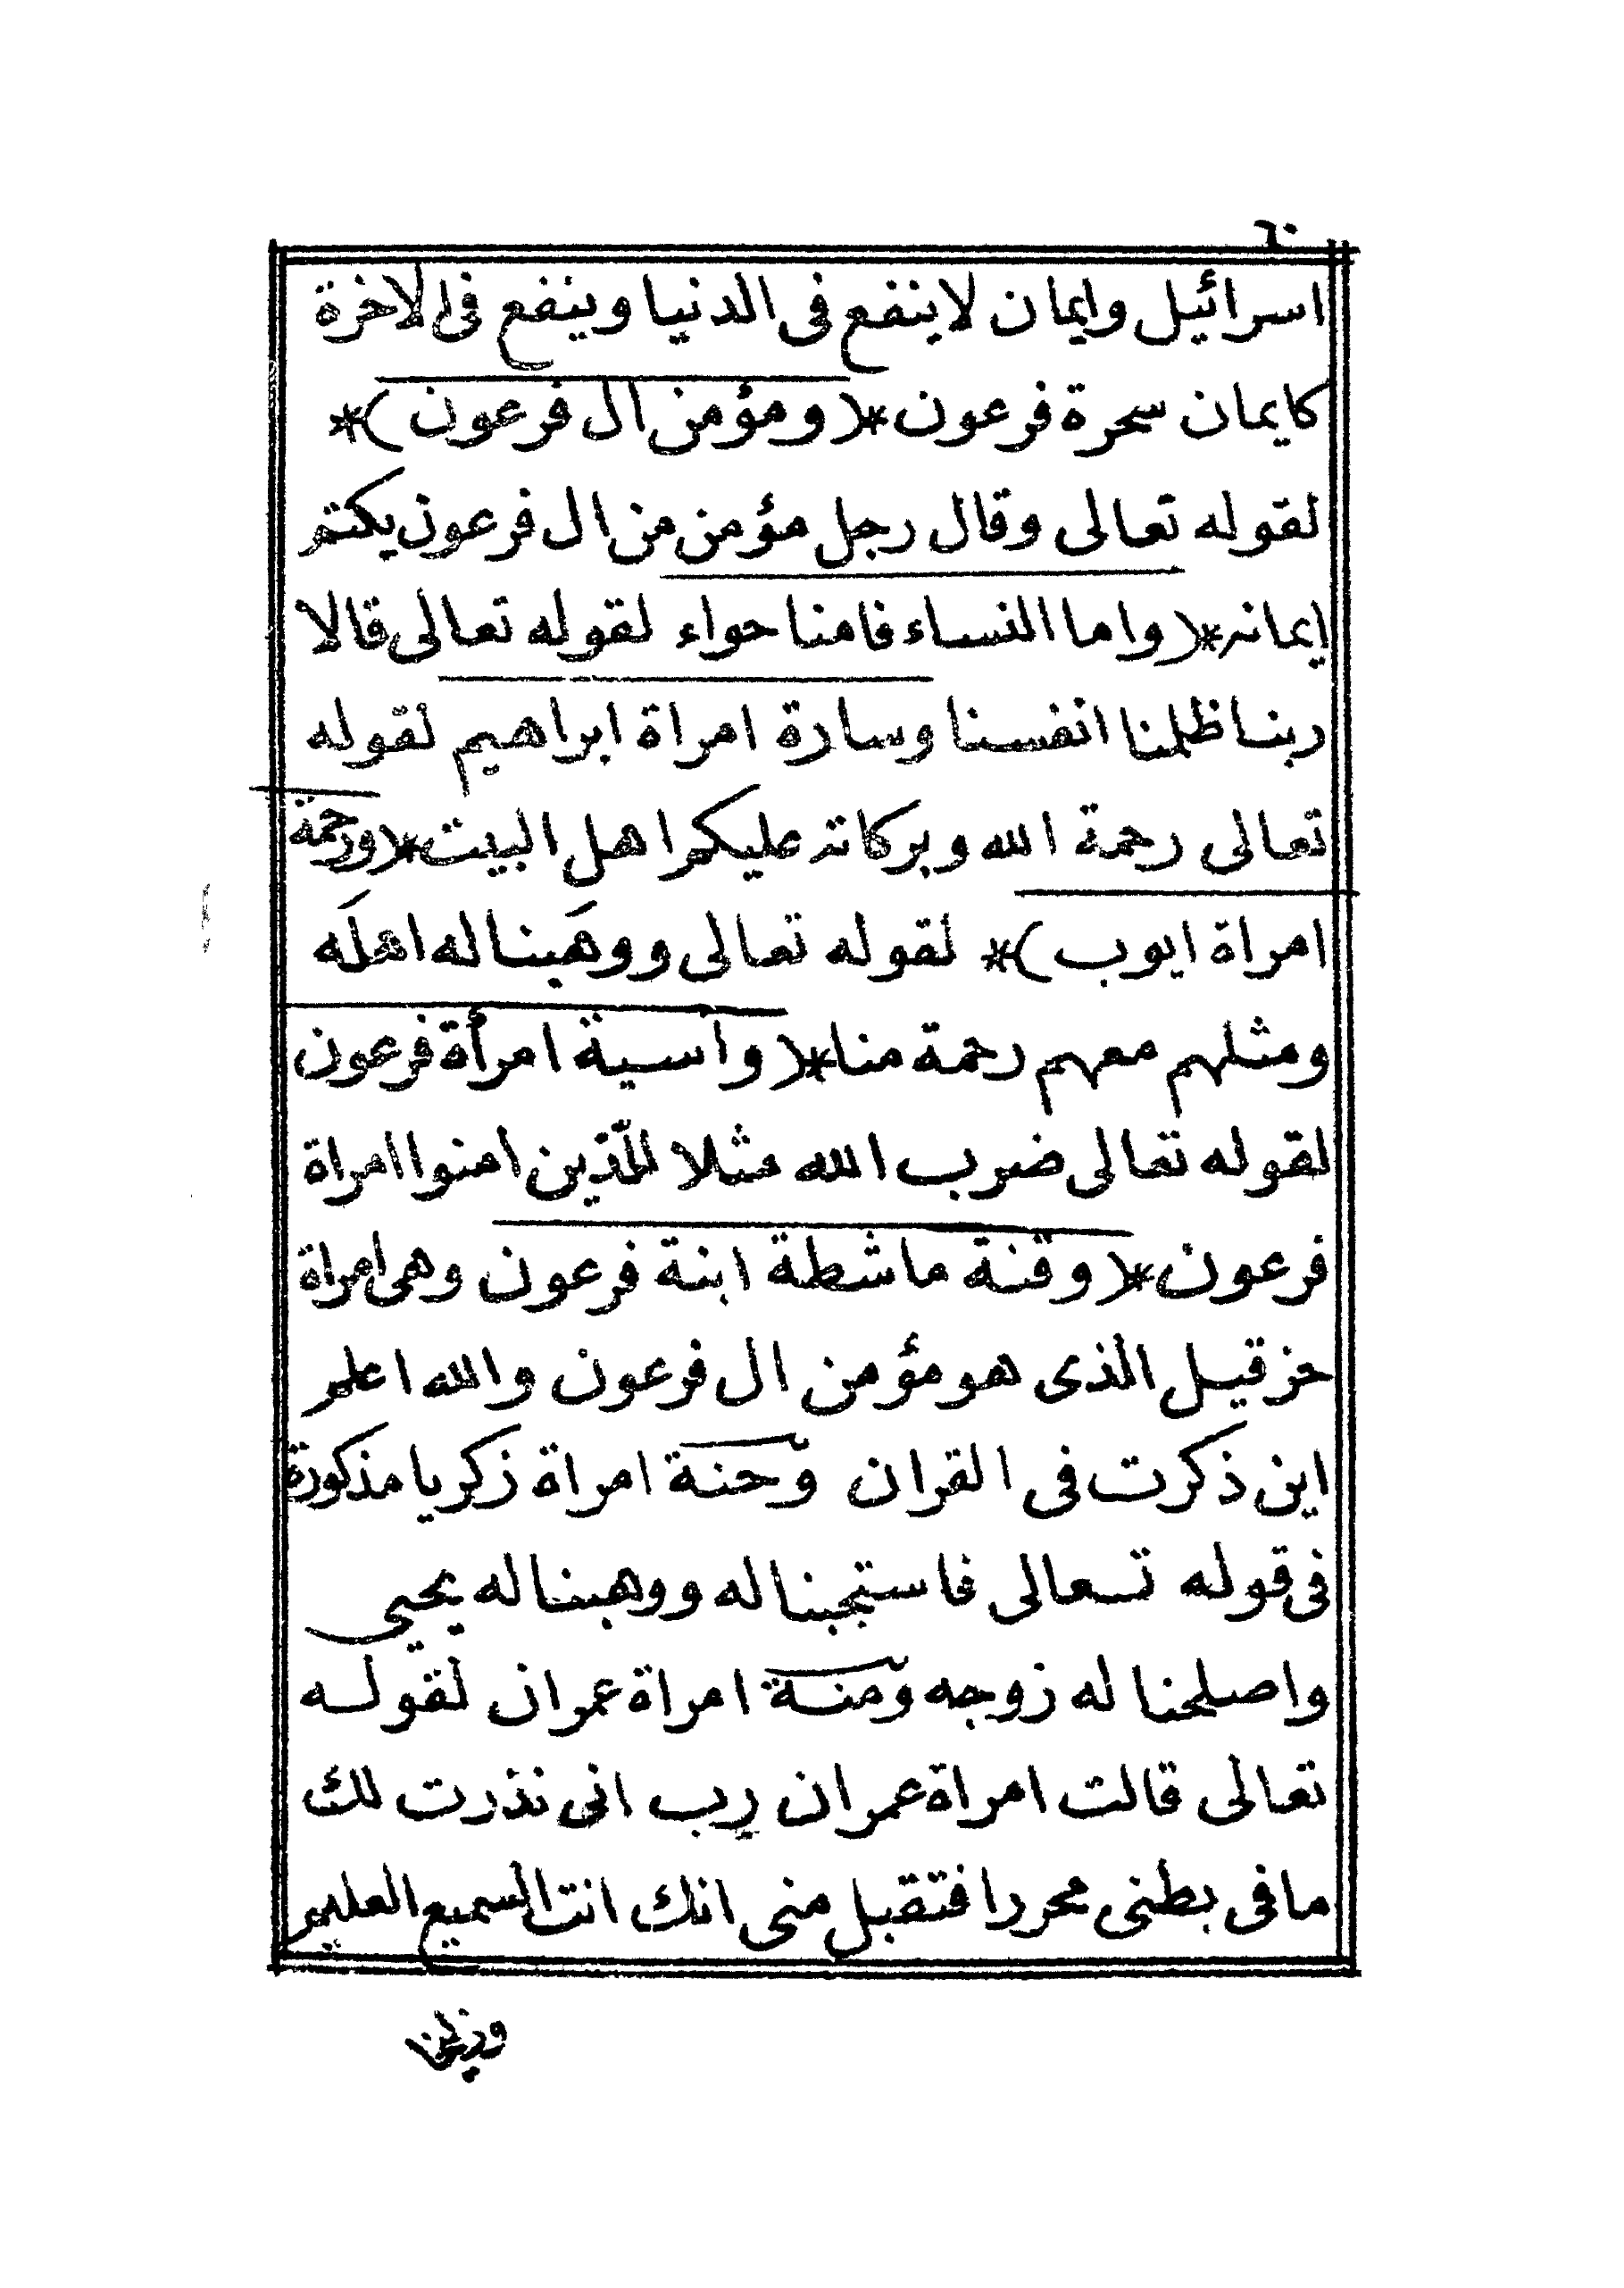 ٦٠
اسرائيل وايمان لاينفع فى الدنيا وينفع فى الاخرة
كايمان سحرة فرعون *( ومؤمن ال فرعون )*
لقوله تعالى وقال رجل مؤمن من ال فرعون يكتم
ايمانه *( واما النساء فامنا حواء لقوله تعالى قالا
ربنا ظلمنا انفسنا وسارة امراة ابراهيم لقوله
تعالى رحمة الله وبركاته عليكم اهل البيت *( ورحمة
امراة ايوب )* لقوله تعالى ووهَبنا له اهلَه
ومثلهم معهم رحمة منا *( وآسية امرأة فرعون
لقوله تعالى ضرب الله مثلا للّذين امنوا امراة
فرعون *( وقنة ماشطة ابنة فرعون وهى امراة
حزقيل الذى هو مؤمن ال فرعون والله اعلم
اين ذكرت فى القران وحنة امراة زكريا مذكورة
فى قوله تعالى فاستجبنا له ووهبنا له يحيى
واصلحنا له زوجه ومنة امراة عمران لقوله
تعالى قالت امراة عمران رب انى نذرت لك
مافى بطنى محررا فتقبل منى انك انت السميع العليم